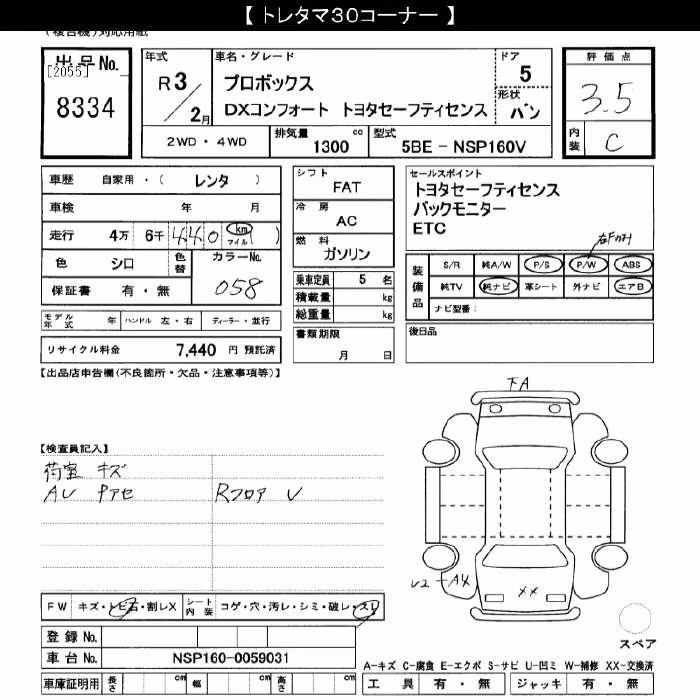 【 トレタマ30コーナー 】
(複合機)対応用紙
出品No.
[2055]
8334
年式
R 3 / 2月
車名・グレード
プロボックス
DXコンフォート トヨタセーフティセンス
ドア
5
形状
バン
2WD・4WD
排気量 1300 cc
型式 5BE - NSP160V
評価点
3.5
内装 C
車歴 自家用・( レンタ )
車検 年 月
走行 4万 6千 440 km マイル ( )
色 シロ 色替 カラーNo. 058
保証書 有・無
モデル年式 年 ハンドル 左・右 ディーラー・並行
リサイクル料金 7,440 円 預託済
シフト
FAT
冷房
AC
燃料
ガソリン
乗車定員 5 名
積載量 kg
総重量 kg
書類期限
月 日
セールスポイント
トヨタセーフティセンス
バックモニター
ETC
右Fのみ
装備品
S/R 純A/W P/S P/W ABS
純TV 純ナビ 革シート 外ナビ エアB
ナビ型番:
後日品
【出品店申告欄(不良箇所・欠品・注意事項等)】
【検査員記入】
荷室 キズ
AU Pアセ Rフロア U
下A
U2 A4
××
FW キズ・トビ石・割レX シート内装 コゲ・穴・汚レ・シミ・破レ・スレ
登録 No.
車台 No. NSP160-0059031
車庫証明用 長さ cm 幅 cm 高さ cm
スペア
A-キズ C-腐食 E-エクボ S-サビ U-凹ミ W-補修 XX-交換済
工具 有・無 ジャッキ 有・無